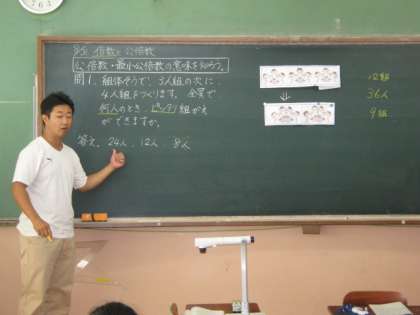 倍数と公倍数
公倍数・最小公倍数の意味を知ろう。
問1. 組体そうで、3人組の次に、
4人組をつくります。全員で
何人のとき、ピッタリ組がえ
ができますか。
答え、24人、12人、8人
12組
36人
9組